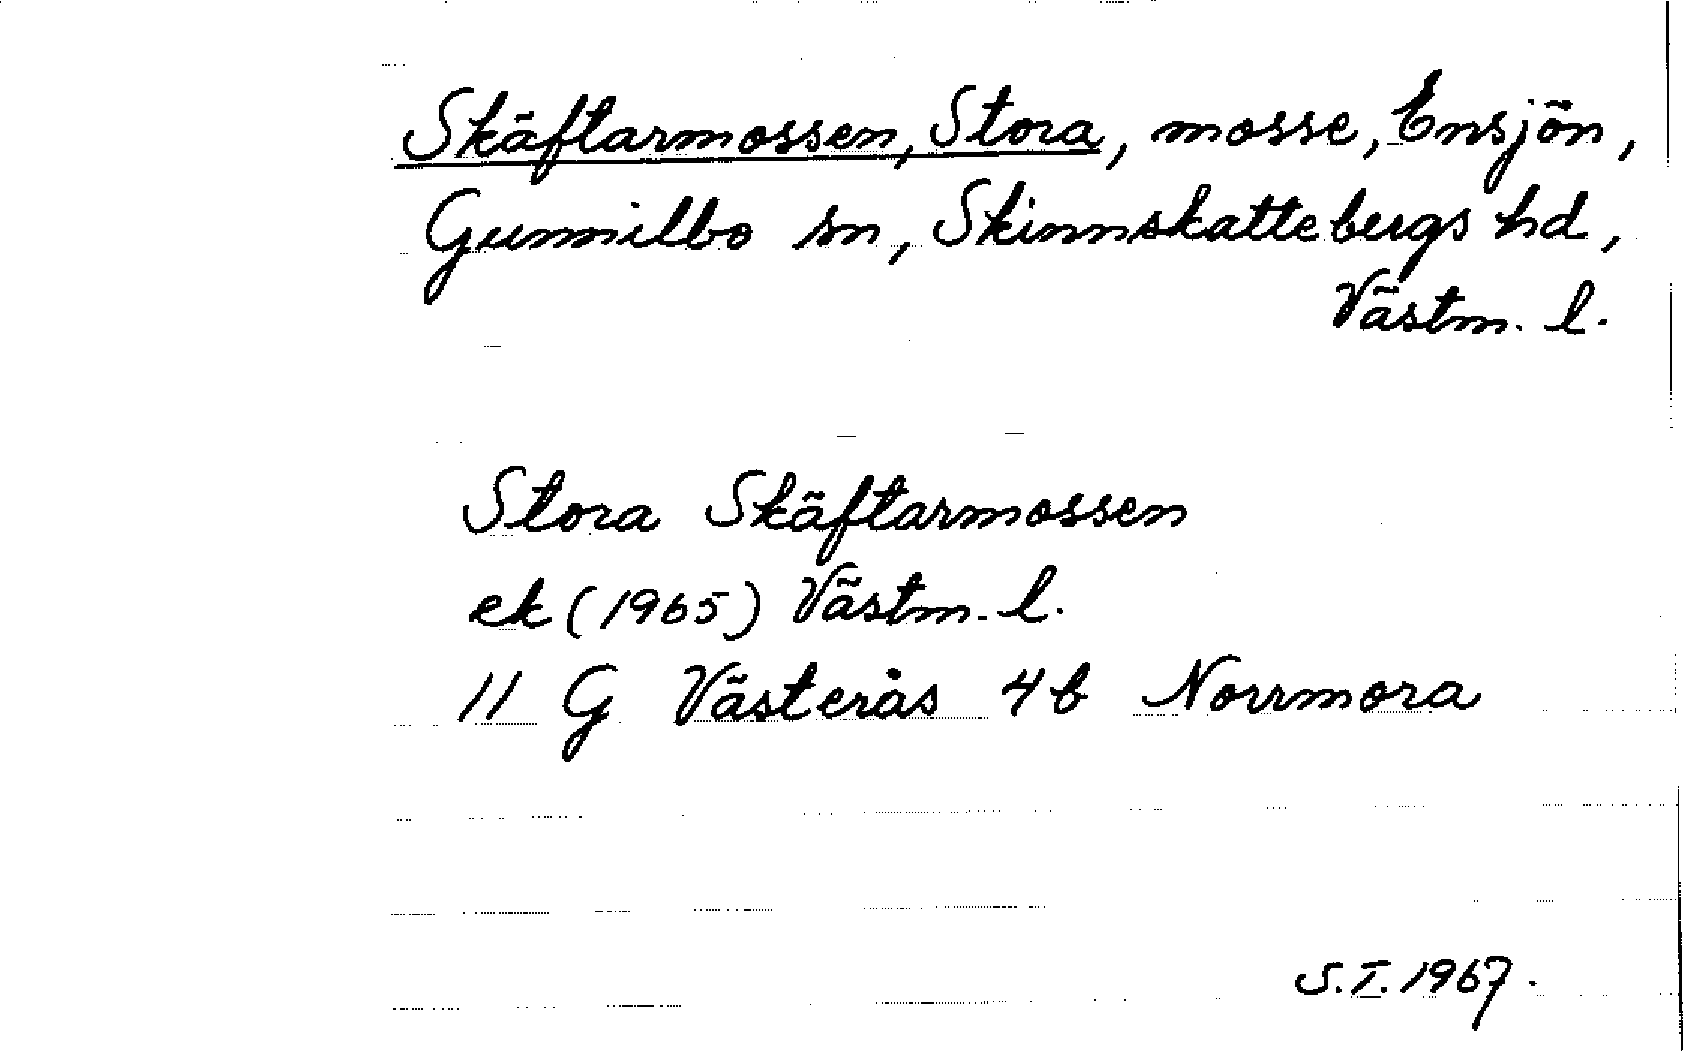 Skäftarmossen, Stora, mosse, Ensjön,
Gunnilbo sn, Skinnskattebergs hd,
Västm. l.
Stora Skäftarmossen
ek (1965) Västm. l.
11 G Västerås 4b Norrmora
S.I. 1967.